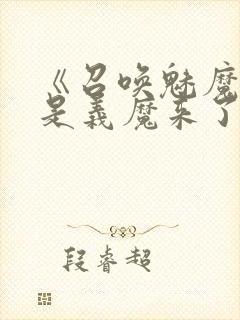 《召唤魅魔
是义魔来了
段睿超